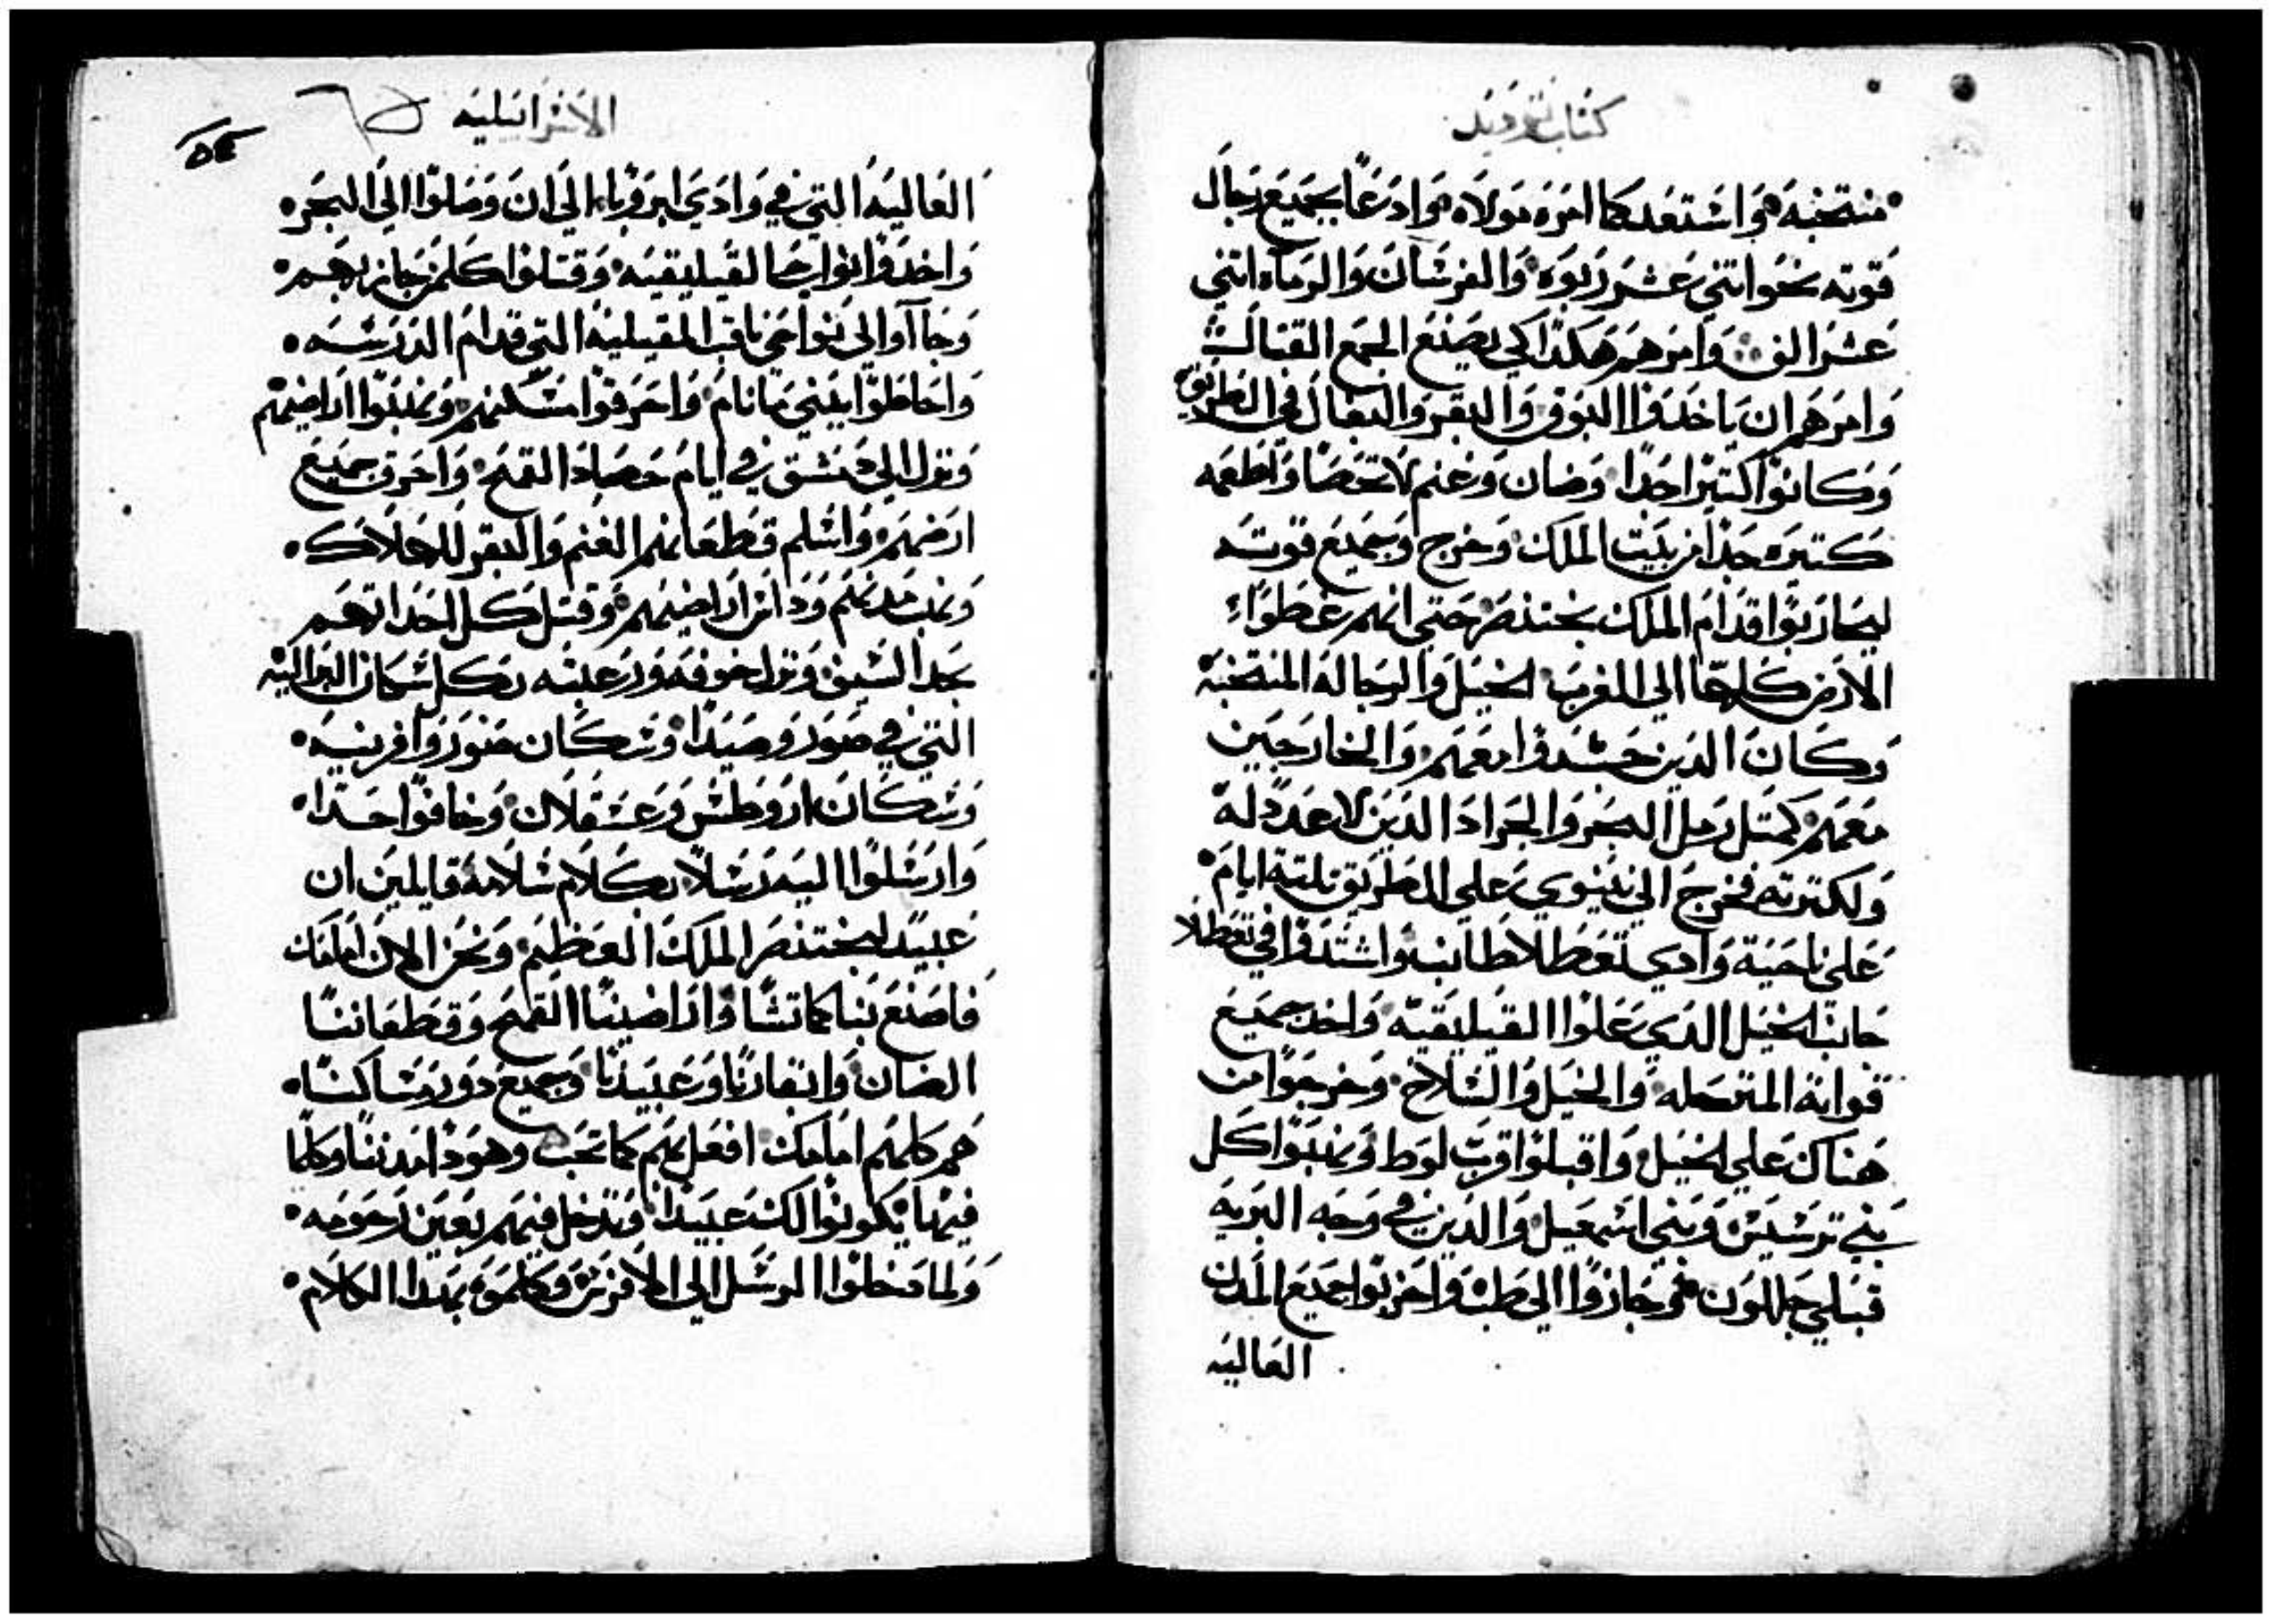 كتاب يوديت
منتخبه واستعد كما امره مولاه وادعا بجميع رجال
قوته نحوا تني عشر ربوه والفرسان والرماه اتني
عشر الف وامرهم هكدا لكي يصنع الجمع القتال
وامرهم ان ياخدوا النوق والبقر والبغال في الطريق
وكانوا كتيرا جدا وضان وغنم لا تحصا واطعمه
كتيره جدا من بيت الملك وخرج وجميع قوته
ليحاربوا قدام الملك بختنصر حتي انهم غطوا
الارض كلها الي المغرب الخيل والرجاله المنتخبة
وكان الدين حشدوا معهم والخارجين
معهم كمتل رمل البحر والجراد الدين لا عدد له
ولكترته فخرج الي نينوي علي الطريق تلتة ايام
علي ناحية وادي تعطلا طالبه واشتدوا في تعطلا
جانب الخيل الدي علوا القيليقيه واخد جميع
قواته المترجله والخيل والسلاح وخرجوا من
هناك علي الخيل واقبلوا قرب لوط ونهبوا كل
بني ترسيس وبني اسمعيل والدين في وجه البريه
قبلي جللون وجازوا الي واخربوا جميع المدن
العاليه
الاسرائيليه
٥٤
العاليه التي في وادي ابروبا الي ان وصلوا الي البحر
واخدوا نواحي القيليقيه وقتلوا كلمن حاربهم
وجاآوا الي نواحي يافت القبيليه التي قدام
واحاطوا ببني مانام واحرقوا مسكنهم ونهبوا اراضيهم
ونزل الي دمشق في ايام حصاد القمح واحرق جميع
ارضهم واسلم قطعانهم الغنم والبقر للهلاك
ونهب مدنهم وداس اراضيهم وقتل كل احداتهم
بحد السيف ونزل خوفه ورعبته بكل سكان
التي في صور وصيدا وسكان صور وافرينيه
وسكان اروطس وعسقلان وخافوا جدا
وارسلوا اليه رسلا بكلام سلامة قايلين ان
عبيد لبختنصر الملك العظيم ونحن الان امامك
فاصنع بنا كما تشا واراضينا القمح وقطعاننا
الضان وابقارنا وعبيدنا وجميع دور مساكننا
هم كلهم امامك افعل بهم كما تحب وهودا مدننا وكلما
فيها يكونوا لك عبيدا وتدخل فيهم بعين رحومه
ولما دخلوا الرسل الي الافرنس وكلموه بهدا الكلام